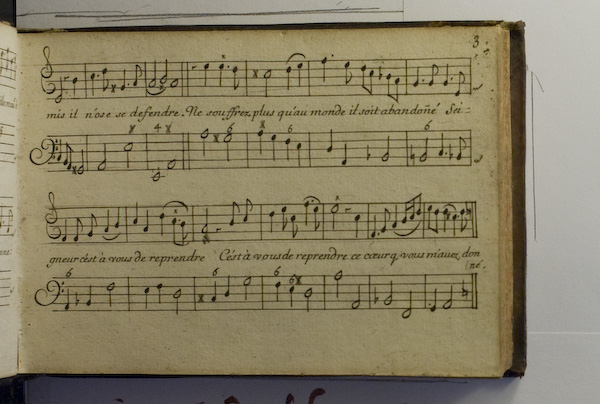 3
mis il n'ose se defendre. Ne souffrez plus qu'au monde il soit abandoñé Sei-
x 4 x 6 x 6 6
gneur c'ést à vous de reprendre C'ést à vous de reprendre ce cœur q, vous m'auez don
né.
6 6 6 6 6x